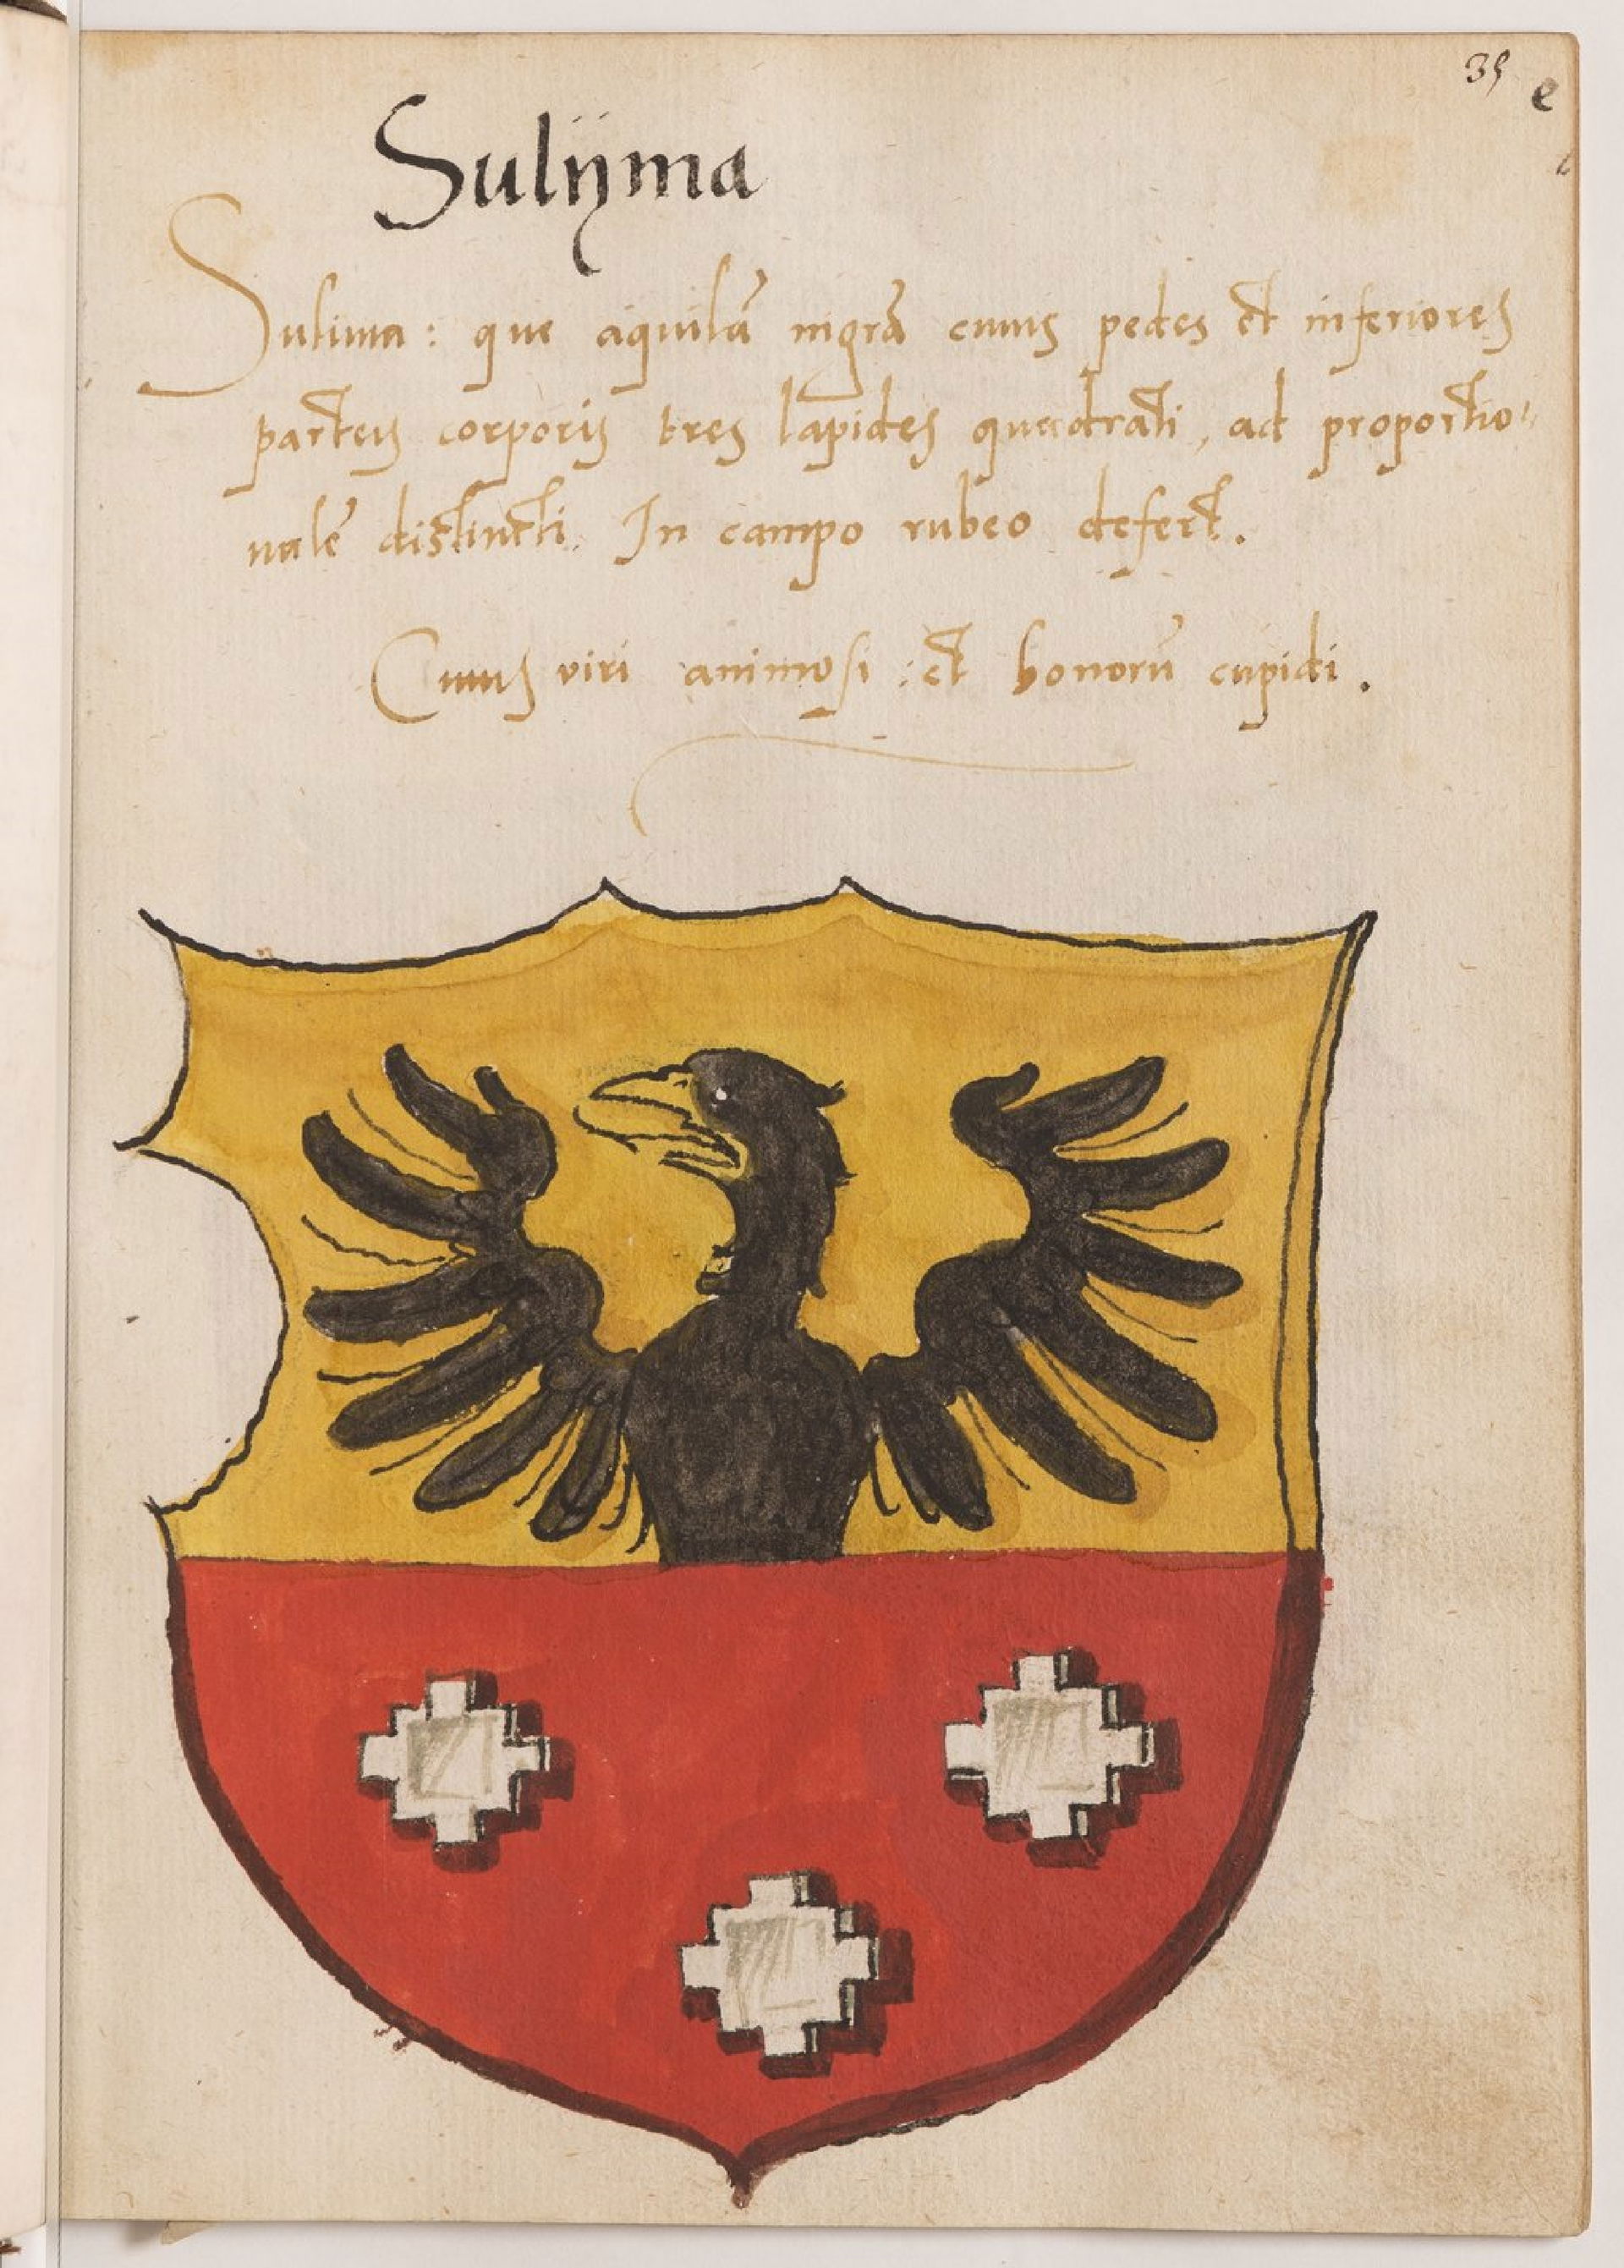 35
e
Sulijma
Sulima: que aquilā nigrā cuius pedes et inferiores
partes corporis tres lapides quadrati, ad proportio-
nalē distincti. In campo rubeo defert.
Cuius viri animosi: et honorū cupidi.